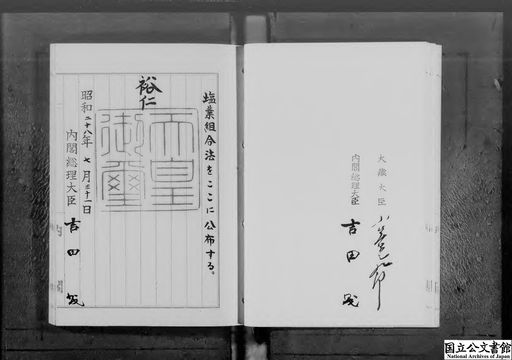 塩業組合法をここに公布する。
裕仁
天皇
御璽
昭和二十八年七月三十一日
内閣総理大臣 吉田茂
大蔵大臣 小笠原九郎
内閣総理大臣 吉田茂
国立公文書館
National Archives of Japan